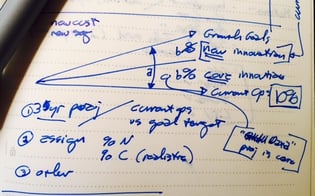 new cust
new seg
Growth Goals
b% new innovation
a
b% core innovation
Current Ops 10%
① 3yr proj
current ops
vs goal target
② assign % N
% C (realistic)
③ order
"Small Data"
proj is core